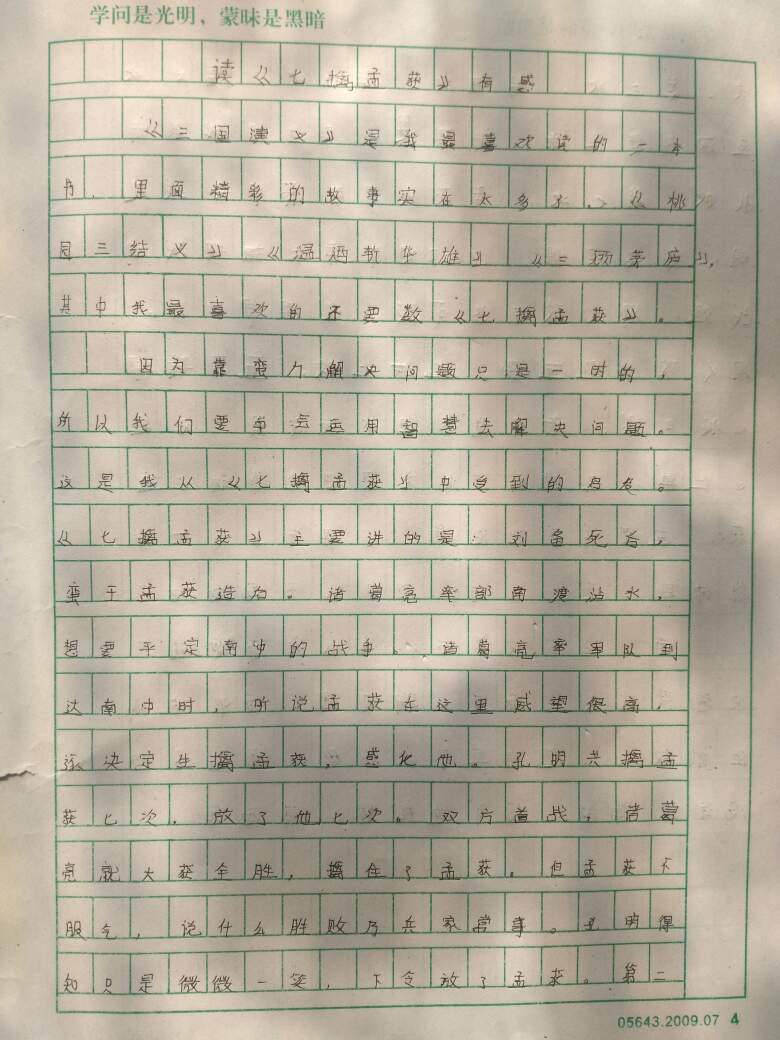 学问是光明，蒙昧是黑暗
读《七擒孟获》有感
《三国演义》是我最喜欢读的一本
书，里面精彩的故事实在太多了，《桃
园三结义》《温酒斩华雄》《三顾茅庐》，
其中我最喜欢的还要数《七擒孟获》。
因为靠蛮力解决问题只是一时的，
所以我们要学会运用智慧去解决问题。
这是我从《七擒孟获》中受到的启发。
《七擒孟获》主要讲的是：刘备死后，
蛮王孟获造反。诸葛亮率部南渡泸水，
想要平定南中的战争。诸葛亮率军队到
达南中时，听说孟获在这里威望很高，
遂决定生擒孟获，感化他。孔明共擒孟
获七次，放了他七次。双方首战，诸葛
亮就大获全胜，擒住了孟获。但孟获不
服气，说什么胜败乃兵家常事。孔明得
知只是微微一笑，下令放了孟获。第二
05643.2009.07 4